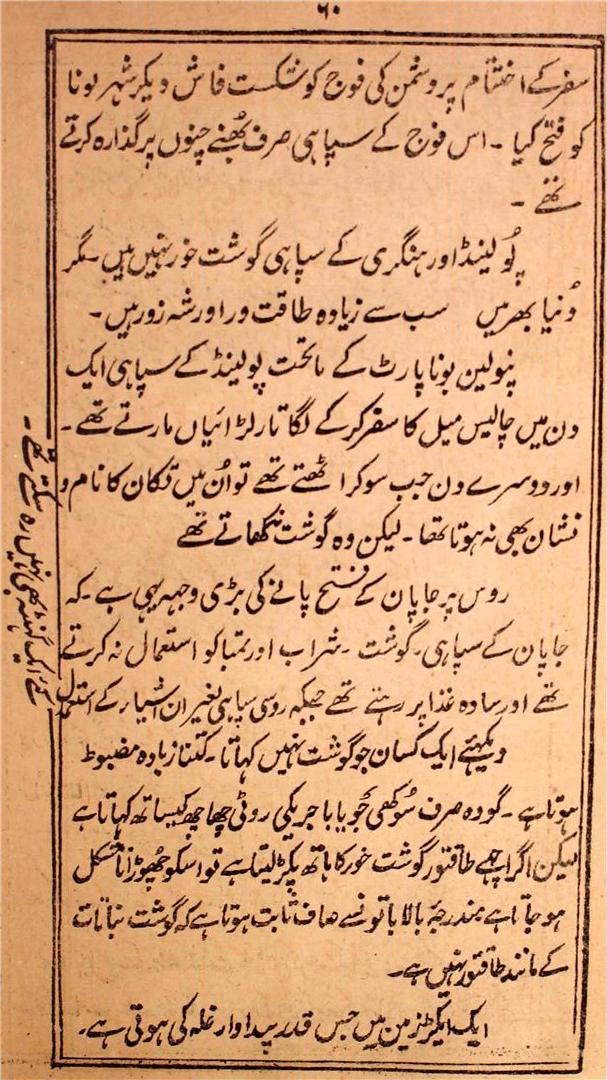 ۶۰
سفر کے اختتام پر دشمن کی فوج کو شکست فاش دیکر شہر پونا
کو فتح کیا ۔ اس فوج کے سپاہی صرف بُھنے چنوں پر گذارہ کرتے
تھے ۔
پُولینڈ اور ہنگری کے سپاہی گوشت خور نہیں ہیں ۔ مگر
دُنیا بھر میں سب سے زیادہ طاقت ور اور شہ زور ہیں ۔
نپولین بونا پارٹ کے ماتحت پولینڈ کے سپاہی ایک
دن میں چالیس میل کا سفر کر کے لگاتار لڑائیاں مارتے تھے ۔
اور دوسرے دن جب سو کر اٹھتے تھے تو اُن میں تکان کا نام و
نشان بھی نہ ہوتا تھا ۔ لیکن وہ گوشت نکھاتے تھے
روس پر جاپان کے فتح پانے کی بڑی وجہ یہی ہے ۔ کہ
جاپان کے سپاہی ۔ گوشت ۔ شراب اور تمباکو استعمال نہ کرتے
تھے اور سادہ غذا پر رہتے تھے جبکہ روسی سپاہی بغیر ان اشیاء کے استعمال
کے ایک گھنٹہ بھی نہیں رہ سکتے تھے ۔
دیکھئے ایک کسان جو گوشت نہیں کہاتا ۔ کتنا زیادہ مضبوط
ہوتا ہے ۔ گو وہ صرف سُوکھی جَو یا باجریکی روٹی چھاچھ کیساتھ کہاتا ہے
لیکن اگر اچھے طاقتور گوشت خور کا ہاتھ پکڑ لیتا ہے تو اسکو چھوڑانا مشکل
ہو جاتا ہے مندرجۂ بالا باتونسے صاف ثابت ہوتا ہے کہ گوشت نباتات
کے مانند طاقتور نہیں ہے ۔
ایک ایکڑ زمین میں جس قدر پیداوار غلہ کی ہوتی ہے ۔